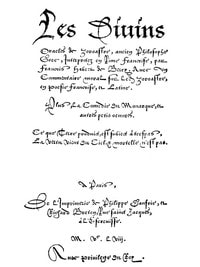 Les Diuins
Oracles de Zoroastre, ancien Philosophe
Grec, Interpretez en Rime Françoise, par
François Habert de Berry. Auec vn
Commentaire moral sur led. Zoroastre,
en poësie Françoise, et Latine.
Plus La Comédie du Monarque, et
autres petits oeuures.
Ce que l'ame produit, est subiect à
La
A Paris,
De L'Imprimerie de Philippe Danfrie, et
Richard Breton, Rue sainct Jacques,
à L'Escreuisse.
M. V. L. Viij.
Auec priuilege du Roy.